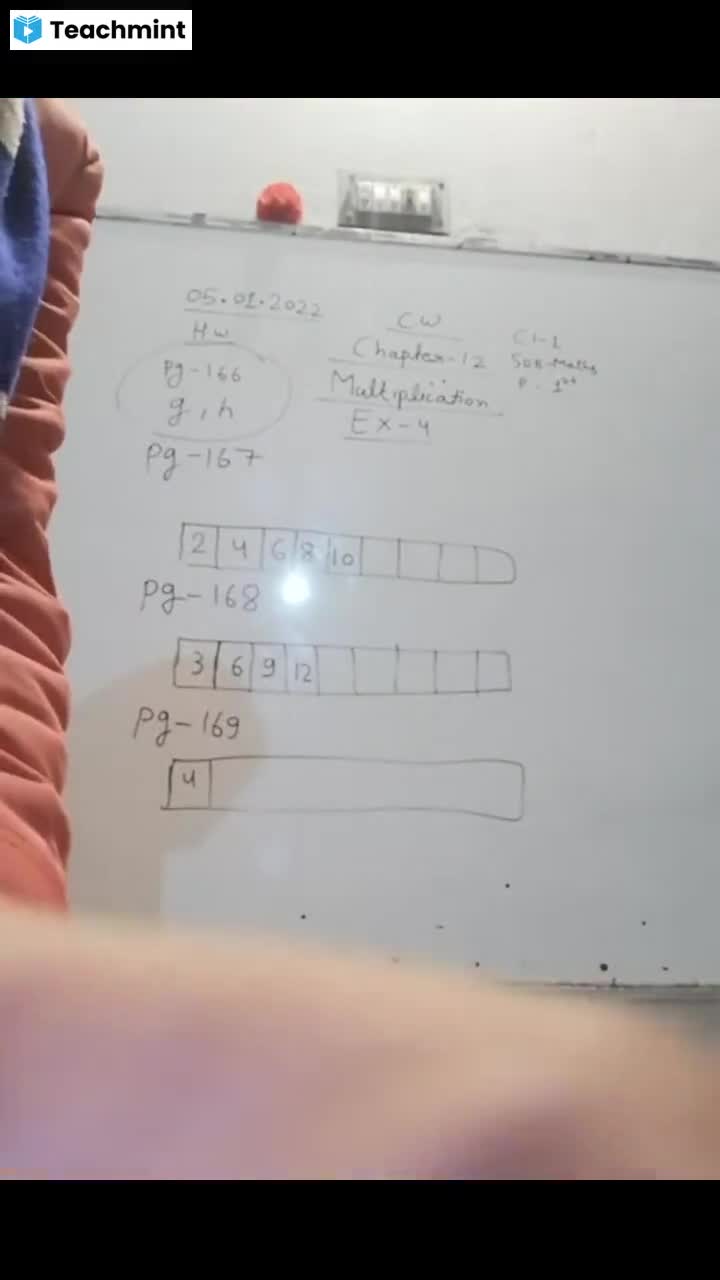 Teachmint
05.01.2022
HW
Pg-166
g, h
Pg-167
CW
Chapter-12
Multiplication
Ex-4
Cl-1
Sub-Maths
P. 1st
2 4 6 8 10
Pg-168
3 6 9 12
Pg-169
4